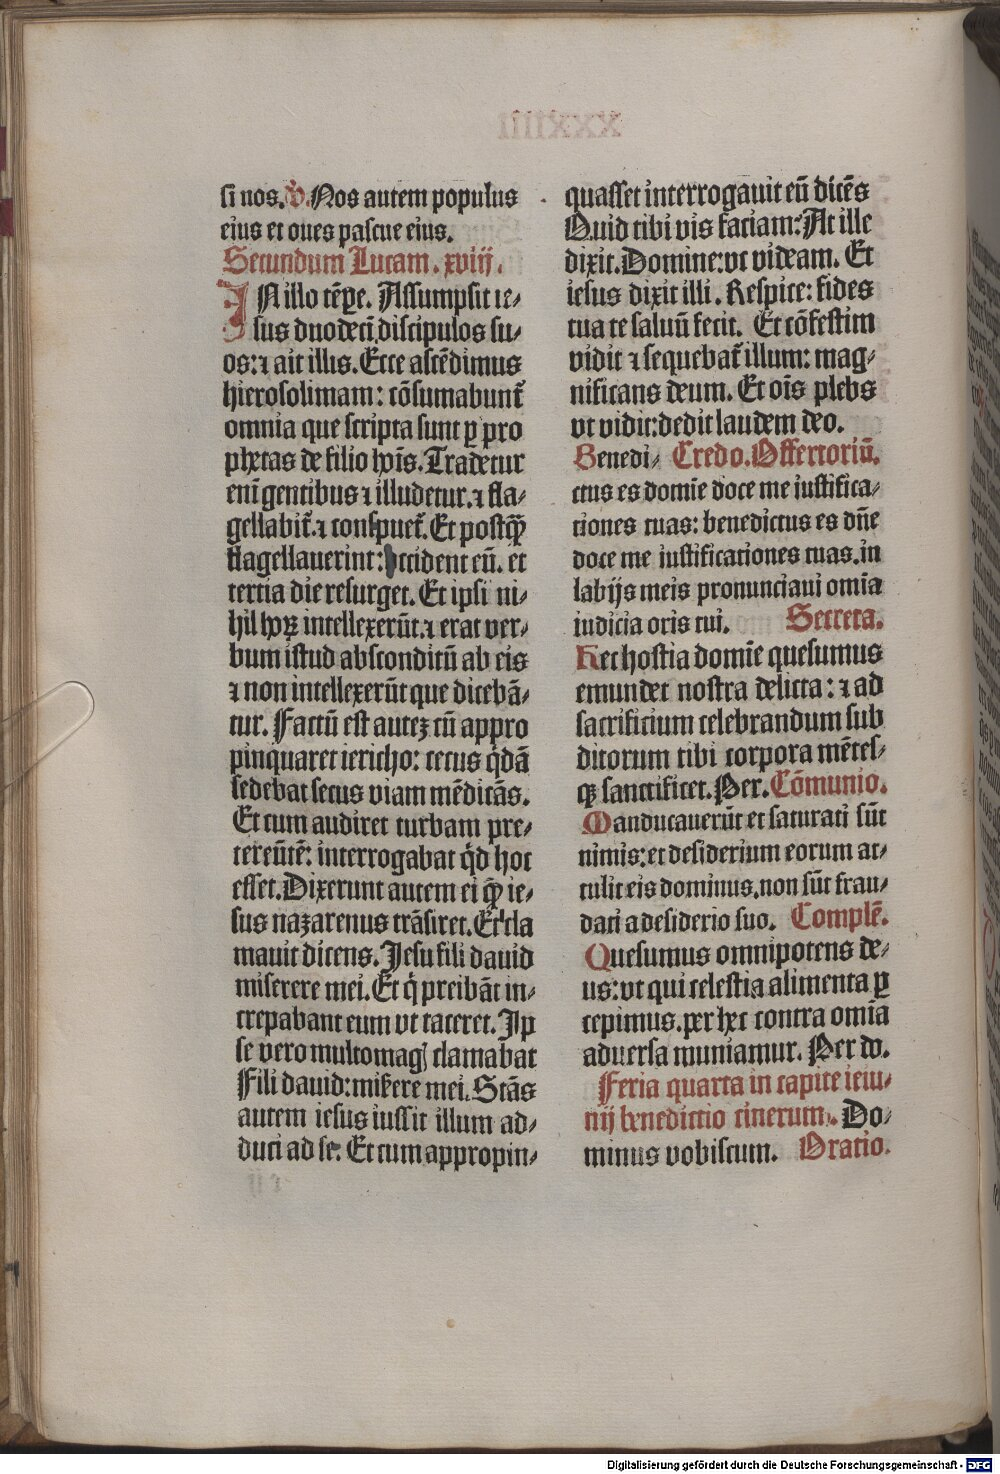 si nos. V. Nos autem populus
eius et oues pascue eius.
Secundum Lucam. xviij.
IN illo tēpe. Assumpsit ie⸗
sus duodecī discipulos su⸗
os: ⁊ ait illis. Ecce ascēdimus
hierosolimam: cōsumabunt᷑
omnia que scripta sunt ꝑ pro
phetas de filio hoīs. Tradetur
enī gentibus ⁊ illudetur. ⁊ fla⸗
gellabit᷑. ⁊ conspuet᷑. Et postqꝫ̄
flagellauerint: occident eū. et
tertia die resurget. Et ipsi ni⸗
hil hoꝝ intellexerūt. ⁊ erat ver⸗
bum istud absconditū ab eis
⁊ non intellexerūt que dicebā⸗
tur. Factū est auteꝫ cū appro
pinquaret iericho: cecus qͥdā
sedebat secus viam mēdicās.
Et cum audiret turbam pre⸗
tereūtē: interrogabat qͥd hoc
esset. Dixerunt autem ei qꝫ̄ ie⸗
sus nazarenus trāsiret. Et cla
mauit dicens. Jesu fili dauid
miserere mei. Et qͥ preibāt in⸗
crepabant eum vt taceret. Ip
se vero multomagꝭ clamabat
Fili dauid: mise᷑re mei. Stās
autem iesus iussit illum ad⸗
duci ad se. Et cum appropin⸗
quasset interrogauit eū dicēs
Quid tibi vis faciam: At ille
dixit. Domine: vt videam. Et
iesus dixit illi. Respice: fides
tua te saluū fecit. Et cōfestim
vidit ⁊ sequebat᷑ illum: mag⸗
nificans deum. Et oīs plebs
vt vidit: dedit laudem deo.
Benedi⸗ Credo. Offertoriū.
ctus es domīe doce me iustifica⸗
tiones tuas: benedictus es dn̄e
doce me iustificationes tuas. in
labijs meis pronunciaui omīa
iudicia oris tui. Secreta.
Hec hostia domīe quesumus
emundet nostra delicta: ⁊ ad
sacrificium celebrandum sub
ditorum tibi corpora mētes⸗
qꝫ sanctificet. Per. Cōmunio.
Manducauerūt et saturati sūt
nimis: et desiderium eorum at⸗
tulit eis dominus. non sūt frau⸗
dati a desiderio suo. Complē.
Quesumus omnipotens de⸗
us: vt qui celestia alimenta ꝑ
cepimus. per hec contra omīa
aduersa muniamur. Per do.
Feria quarta in capite ieiu⸗
nij benedictio cinerum. Do⸗
minus vobiscum. Oratio.
Digitalisierung gefördert durch die Deutsche Forschungsgemeinschaft - DFG